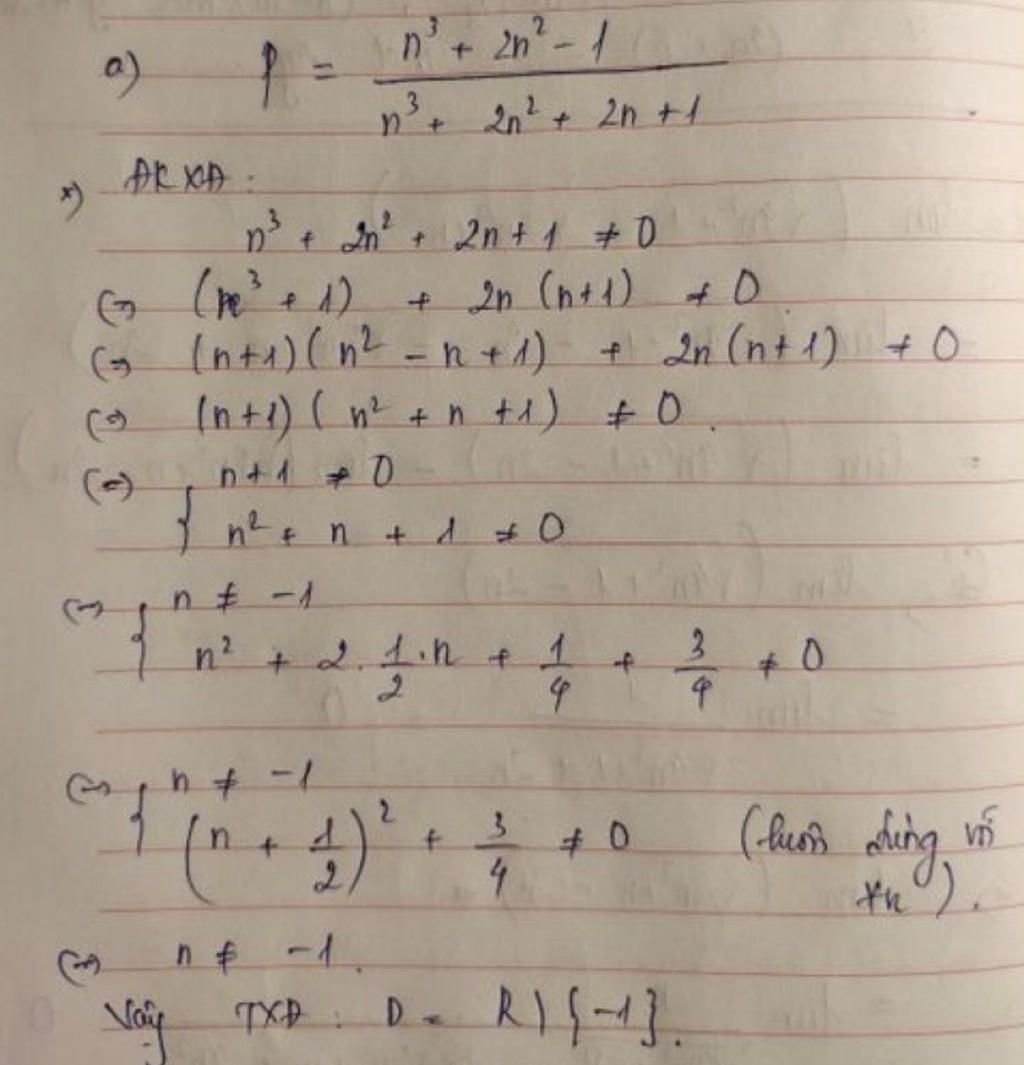 a) P = \frac{n^3 + 2n^2 - 1}{n^3 + 2n^2 + 2n + 1}
*) ĐKXĐ:
n^3 + 2n^2 + 2n + 1 ≠ 0
(=) (n^3 + 1) + 2n (n+1) ≠ 0
(=) (n+1)(n^2 - n + 1) + 2n (n+1) ≠ 0
(=) (n+1)(n^2 + n + 1) ≠ 0.
(=) { n+1 ≠ 0
n^2 + n + 1 ≠ 0
(=) { n ≠ -1
n^2 + 2. \frac{1}{2}.n + \frac{1}{4} + \frac{3}{4} ≠ 0
(=) { n ≠ -1
(n + \frac{1}{2})^2 + \frac{3}{4} ≠ 0 (luôn đúng với
∀n).
(=) n ≠ -1.
Vậy TXĐ: D = R \ {-1}.